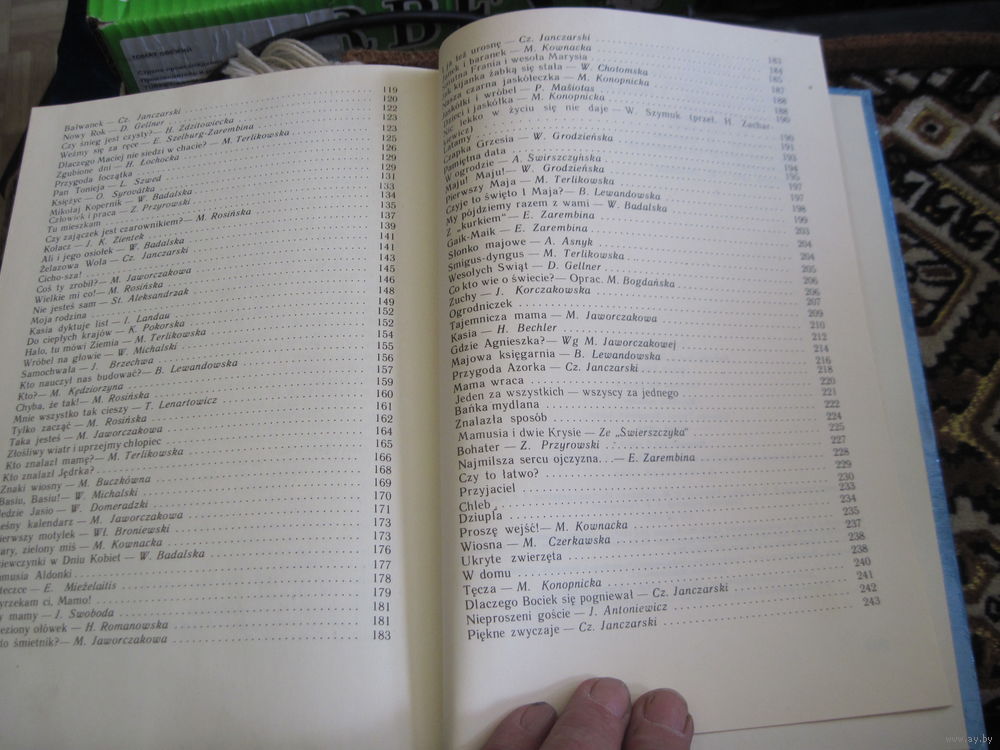 Bałwanek — Cz. Janczarski 119
Nowy Rok — D. Gellner 120
Czy śnieg jest czysty? — H. Zdzitowiecka 122
Weźmy się za ręce — E. Szelburg-Zarembina 123
Dlaczego Maciej nie siedzi w chacie? — M. Terlikowska 123
Zgubione dni — H. Łochocka 125
Przygoda łoczątka 126
Pan Tonieja — L. Szwed 129
Księżyc — O. Syrovátka 129
Mikołaj Kopernik — W. Badalska 131
Człowiek i praca — Z. Przyrowski 133
Tu mieszkam 134
Czy zajączek jest czarownikiem? — M. Rosińska 135
Kołacz — J. K. Zientek 137
Ali i jego osiołek — W. Badalska 139
Żelazowa Wola — Cz. Janczarski 141
Cicho-sza! 141
Coś ty zrobił? — M. Jaworczakowa 143
Wielkie mi co! — M. Rosińska 145
Nie jesteś sam — St. Aleksandrzak 146
Moja rodzina 148
Kasia dyktuje list — I. Landau 149
Do ciepłych krajów — K. Pokorska 152
Halo, tu mówi Ziemia — M. Terlikowska 152
Wróbel na głowie — W. Michalski 154
Samochwała — J. Brzechwa 155
Kto nauczył nas budować? — B. Lewandowska 156
Kto? — M. Kędziorzyna 157
Chyba, że tak! — M. Rosińska 159
Mnie wszystko tak cieszy — T. Lenartowicz 160
Tylko zacząć — M. Rosińska 161
Taka jesteś — M. Jaworczakowa 162
Złośliwy wiatr i uprzejmy chłopiec 164
Kto znalazł mamę? — M. Terlikowska 165
Kto znalazł Jędrka? 166
Znaki wiosny — M. Buczkówna 168
Basiu, Basiu! — W. Michalski 169
ędzie Jasio — W. Domeradzki 170
eśny kalendarz — M. Jaworczakowa 171
ierwszy motylek — Wł. Broniewski 173
ary, zielony miś — M. Kownacka 173
iewczynki w Dniu Kobiet — W. Badalska 176
amusia Aldonki 177
teczce — E. Mieżelaitis 178
yrzekam ci, Mamo! 179
y mamy — J. Swoboda 181
eziony ołówek — H. Romanowska 181
do śmietnik? — M. Jaworczakowa 183
ja też urosnę — Cz. Janczarski 183
i baranek — M. Kownacka 184
Smutna Frania i wesoła Marysia 185
Jak kijanka żabką się stała — W. Chotomska 187
Nasza czarna jaskółeczka — M. Konopnicka 188
Jaskółki i wróbel — P. Maślotas 188
Dzieci i jaskółka — M. Konopnicka 190
Nie lekko w życiu się nie daje — W. Szymuk (przeł. H. Zachar
kiewicz) 190
Latamy 191
Czapka Grzesia — W. Grodzieńska 193
Pamiętna data 194
W ogrodzie — A. Świrszczyńska 195
Maju! Maju! — W. Grodzieńska 197
Pierwszy Maja — M. Terlikowska 197
Czyje to święto 1 Maja? — B. Lewandowska 198
My pójdziemy razem z wami — W. Badalska 199
Z „kurkiem" — E. Zarembina 203
Gaik-Maik — E. Zarembina 204
Słonko majowe — A. Asnyk 204
Śmigus-dyngus — M. Terlikowska 205
Wesołych Świąt — D. Gellner 206
Co kto wie o świecie? — Oprac. M. Bogdańska 206
Zuchy — J. Korczakowska 207
Ogrodniczek 209
Tajemnicza mama — M. Jaworczakowa 210
Kasia — H. Bechler 212
Gdzie Agnieszka? — Wg M. Jaworczakowej 214
Majowa księgarnia — B. Lewandowska 216
Przygoda Azorka — Cz. Janczarski 218
Mama wraca 220
Jeden za wszystkich — wszyscy za jednego 221
Bańka mydlana 222
Znalazła sposób 224
Mamusia i dwie Krysie — Ze „Świerszczyka" 225
Bohater — Z. Przyrowski 227
Najmilsza sercu ojczyzna... — E. Zarembina 228
Czy to łatwo? 229
Przyjaciel 230
Chleb 233
Dziupla 234
Proszę wejść! — M. Kownacka 235
Wiosna — M. Czerkawska 237
Ukryte zwierzęta 238
W domu 238
Tęcza — M. Konopnicka 240
Dlaczego Bociek się pogniewał — Cz. Janczarski 241
Nieproszeni goście — J. Antoniewicz 242
Piękne zwyczaje — Cz. Janczarski 243
www.ay.by